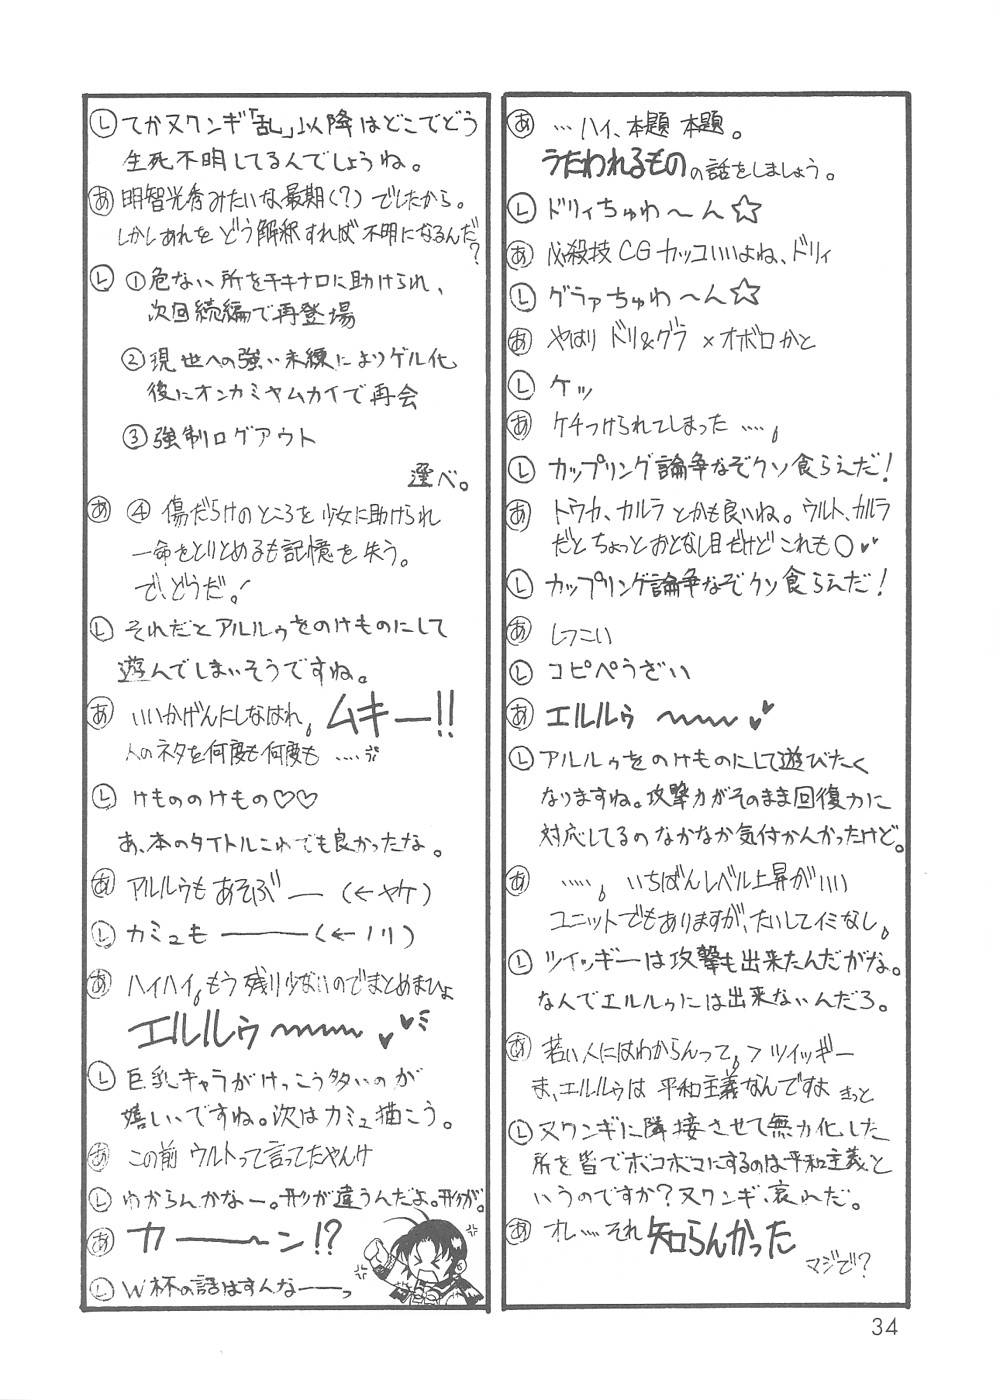 あ …ハイ、本題 本題。
うたわれるものの話をしましょう。
L ドリィちゅわ〜ん☆
あ 必殺技CGカッコいいよね、ドリィ
L グラァちゅわ〜ん☆
あ やはり ドリ&グラ×オボロかと
L ケッ
あ ケチつけられてしまった …..。
L カップリング論争なぞクソ食らえだ!
あ トウカ、カルラ とかも良いね。ウルト、カルラ
だとちょっとおとなし目だけどこれも○♥♥
L カップリング論争なぞクソ食らえだ!
あ しつこい
L コピペうざい
あ エルルゥ 〜〜〜♥♥
L アルルゥをのけものにして遊びたく
なりますね。攻撃力がそのまま回復力に
対応してるのなかなか気付かんかったけど。
あ …..。いちばんレベル上昇がいい
ユニットでもありますが、たいしてイミなし。
L ツイッギーは攻撃も出来たんだがな。
なんでエルルゥには出来ないんだろ。
あ 若い人にはわからんって。>ツイッギー
ま、エルルゥは 平和主義なんですよ きっと
L ヌワンギに隣接させて無力化した
所を皆でボコボコにするのは平和主義と
いうのですか?ヌワンギ、哀れだ。
あ オレ…それ知らんかった
マジで?
L てかヌワンギ「乱」以降はどこでどう
生死不明してるんでしょうね。
あ 明智光秀みたいな最期(?)でしたから。
しかしあれをどう解釈すれば不明になるんだ?
L ①危ない所をチキナロに助けられ、
次回続編で再登場
②現世への強い未練によりゲル化
後にオンカミヤムカイで再会
③強制ログアウト
選べ。
あ ④ 傷だらけのところを少女に助けられ
一命をとりとめるも記憶を失う。
で、どうだ!
L それだとアルルゥをのけものにして
遊んでしまいそうですね。
あ いいかげんにしなはれ。ムキー!!
人のネタを何度も何度も …..
L けもののけもの♡♡
あ、本のタイトルこれでも良かったな。
あ アルルゥもあそぶ―(←ヤケ)
L カミュも ―――(←ノリ)
あ ハイハイ。もう残り少ないのでまとめまひょ
エルルゥ〜〜〜♥♥
L 巨乳キャラがけっこう多いのが
嬉しいですね。次はカミュ描こう。
あ この前 ウルトって言ってたやんけ
L わからんかなー。形が違うんだよ。形が。
あ カ―――〜ン!?
L W杯の話はすんなーーっ
34